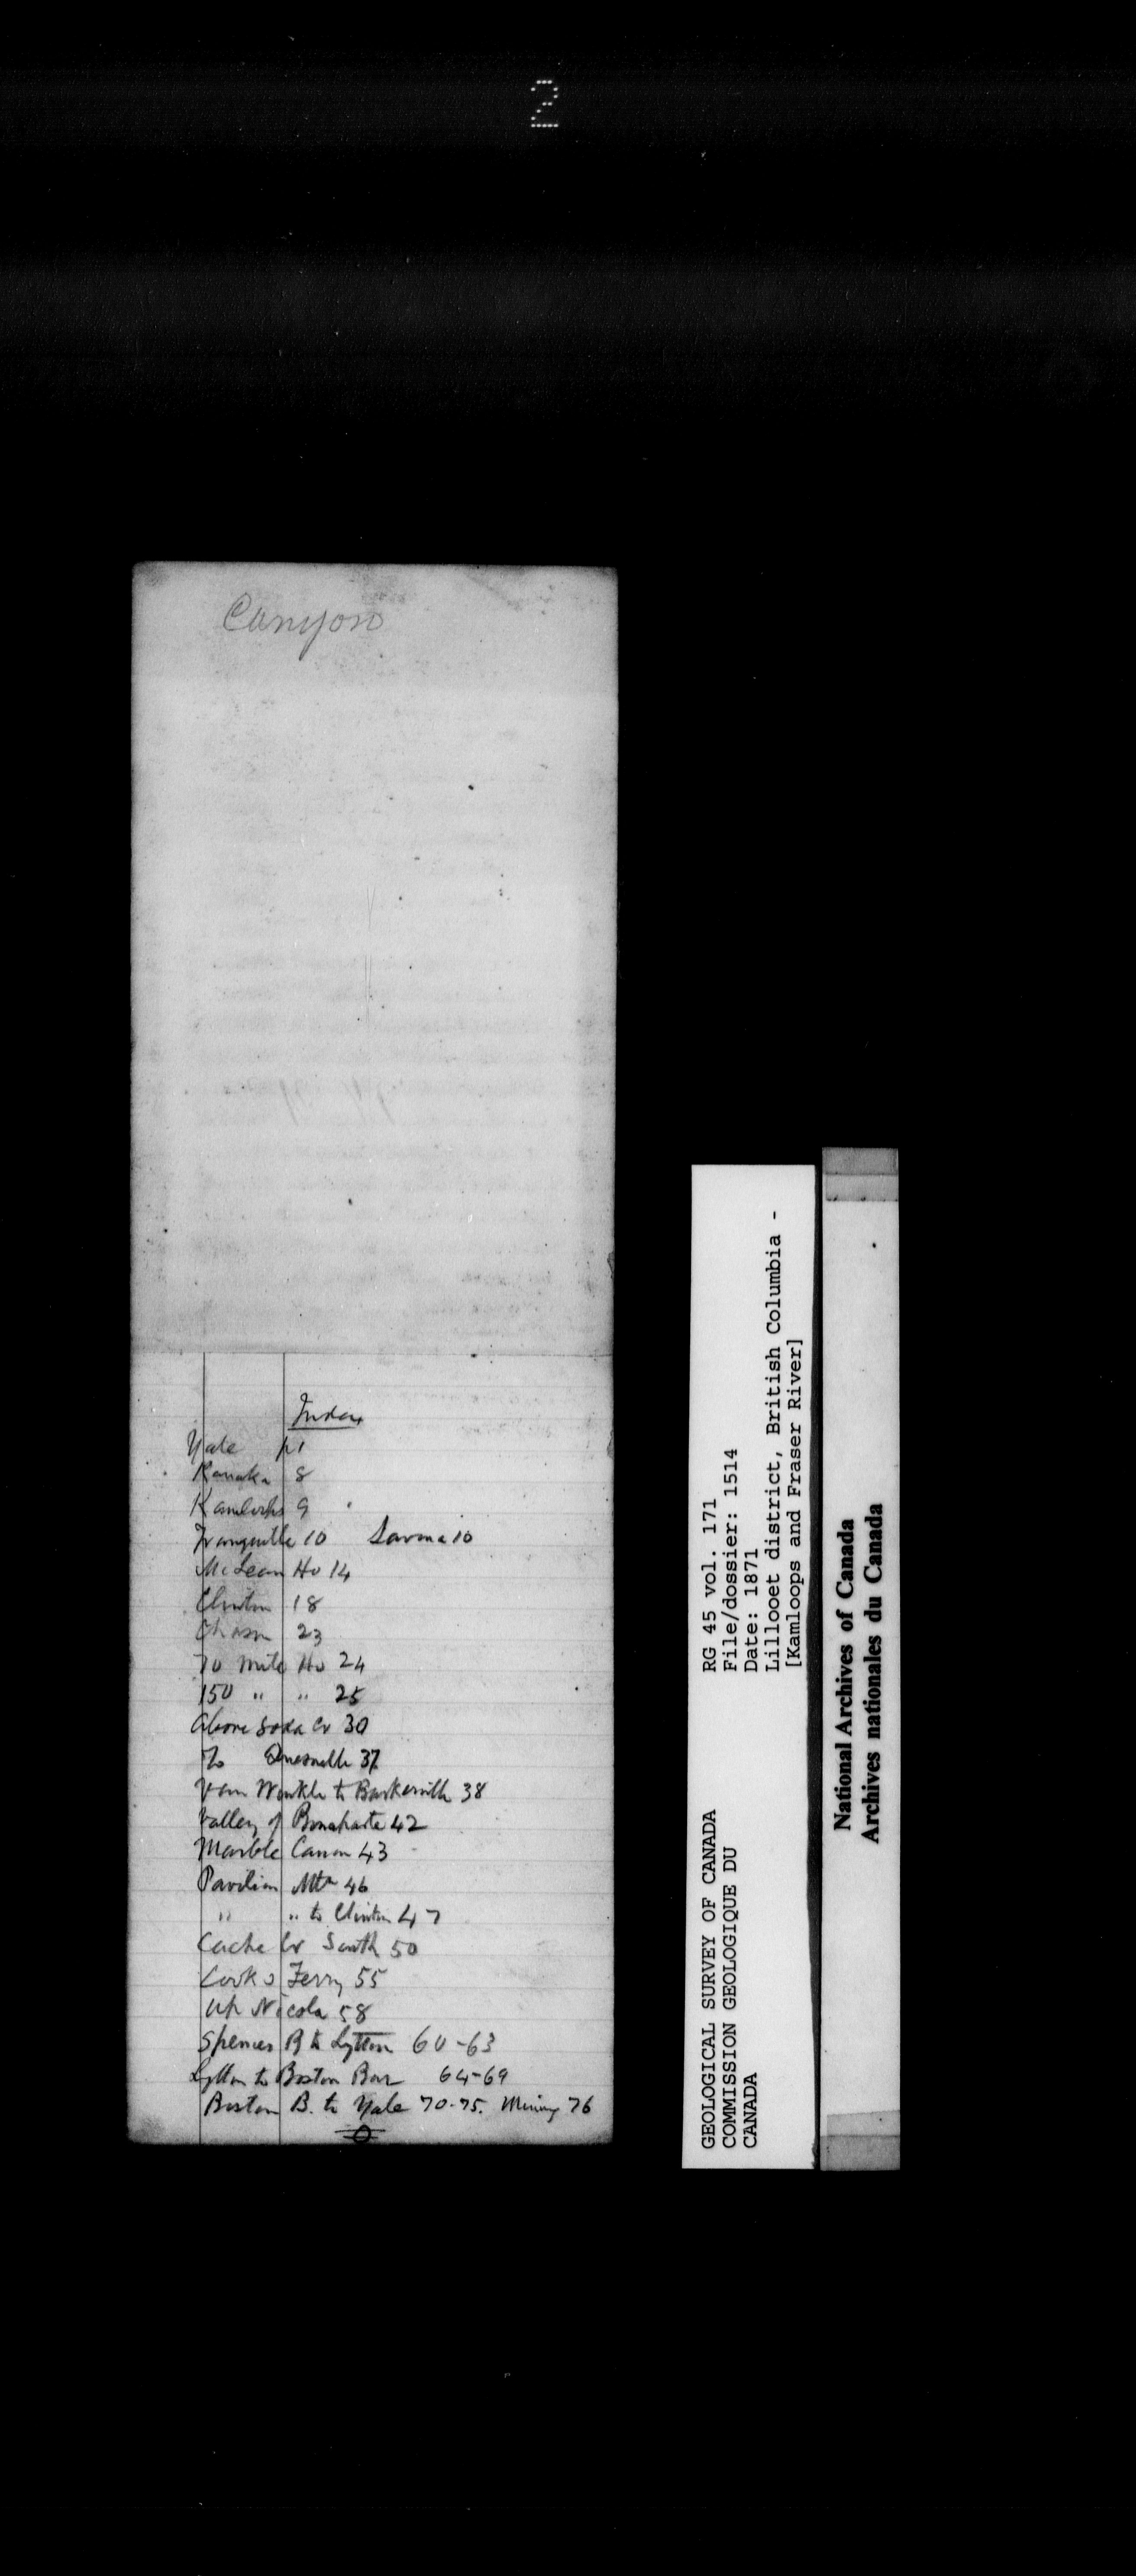 2
Canyon
Index
Yale p1
Kanaka 8
Kamloops 9
Tranquille 10 Savona 10
McLean Ho 14
Clinton 18
Chasm 23
70 Mile Ho 24
150 " " 25
Above Soda Cr 30
To Quesnelle 37
Van Winkle to Barkerville 38
Valley of Bonaparte 42
Marble Canon 43
Pavilion Mtn 46
" " to Clinton 47
Cache Cr South 50
Cooks Ferry 55
Up Nicola 58
Spences B to Lytton 60-63
Lytton to Boston Bar 64-69
Boston B. to Yale 70-75. Mining 76
RG 45 vol. 171
File/dossier: 1514
Date: 1871
Lillooet district, British Columbia -
[Kamloops and Fraser River]
GEOLOGICAL SURVEY OF CANADA
COMMISSION GEOLOGIQUE DU
CANADA
National Archives of Canada
Archives nationales du Canada